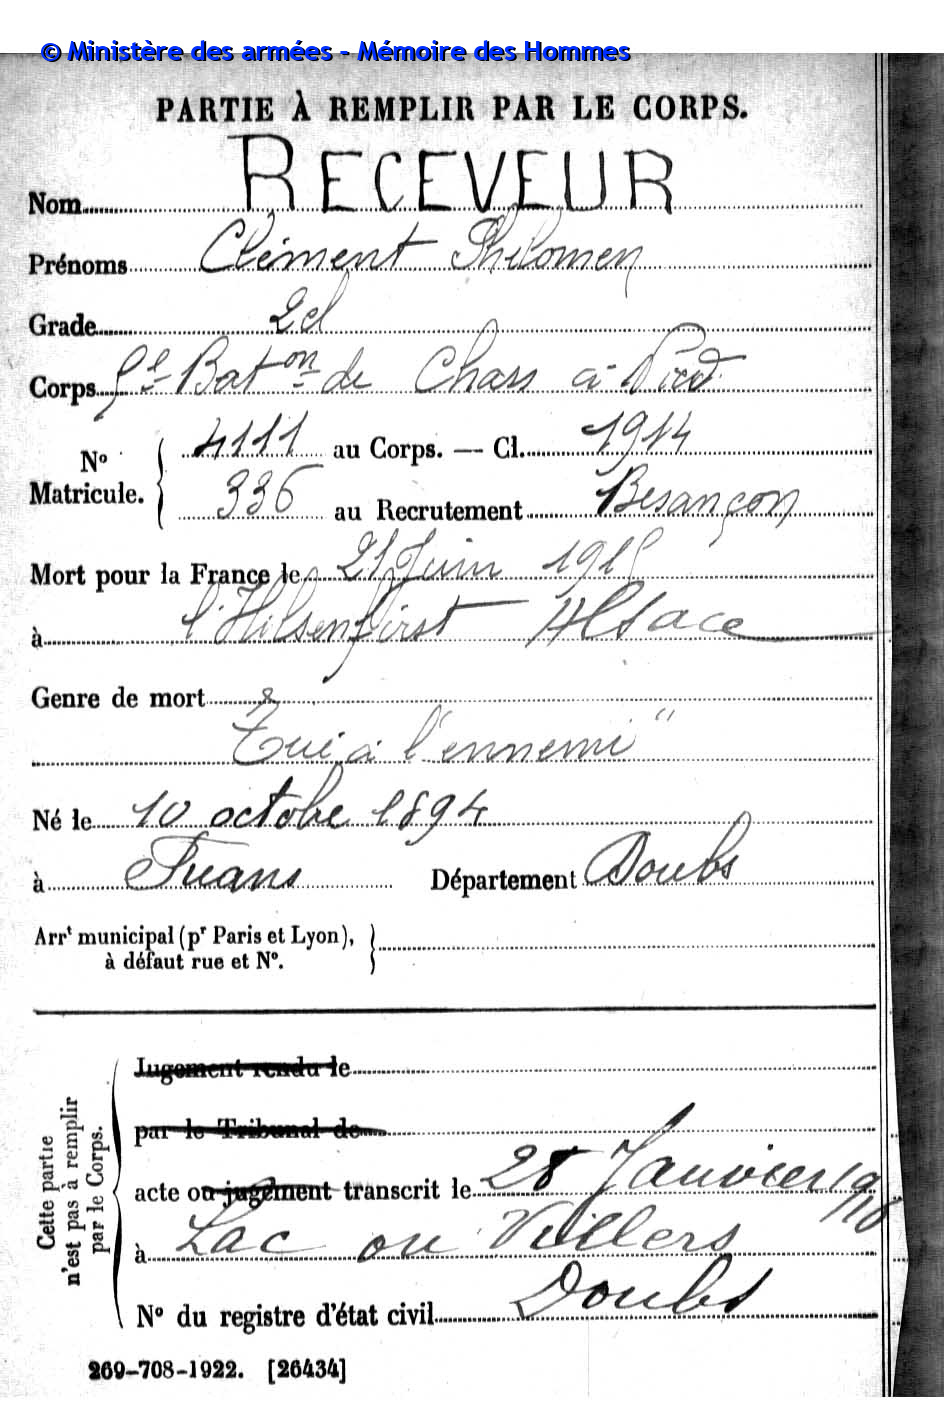 © Ministère des armées - Mémoire des Hommes
PARTIE À REMPLIR PAR LE CORPS.
Nom RECEVEUR
Prénoms Clément Philomen
Grade 2cl
Corps 5e Baton de Chass à Pied
No Matricule. { 4111 au Corps. — Cl. 1914
336 au Recrutement Besançon
Mort pour la France le 21 Juin 1915
à l'Hilsenfirst Alsace
Genre de mort
"Tué à l'ennemi"
Né le 10 octobre 1894
à Fuans Département Doubs
Arrt municipal (pr Paris et Lyon),
à défaut rue et No.
Cette partie
n'est pas à remplir
par le Corps.
Jugement rendu le
par le Tribunal de
acte ou jugement transcrit le 28 Janvier 1916
à Lac ou Villers
Doubs
No du registre d'état civil
269-708-1922. [26434]